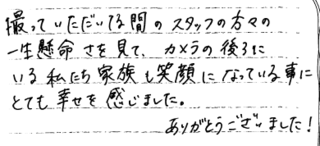 撮っていただいてる間のスタッフの方々の
一生懸命さを見て、カメラの後ろに
いる私たち家族も笑顔になっている事に
とても幸せを感じました。
ありがとうございました!